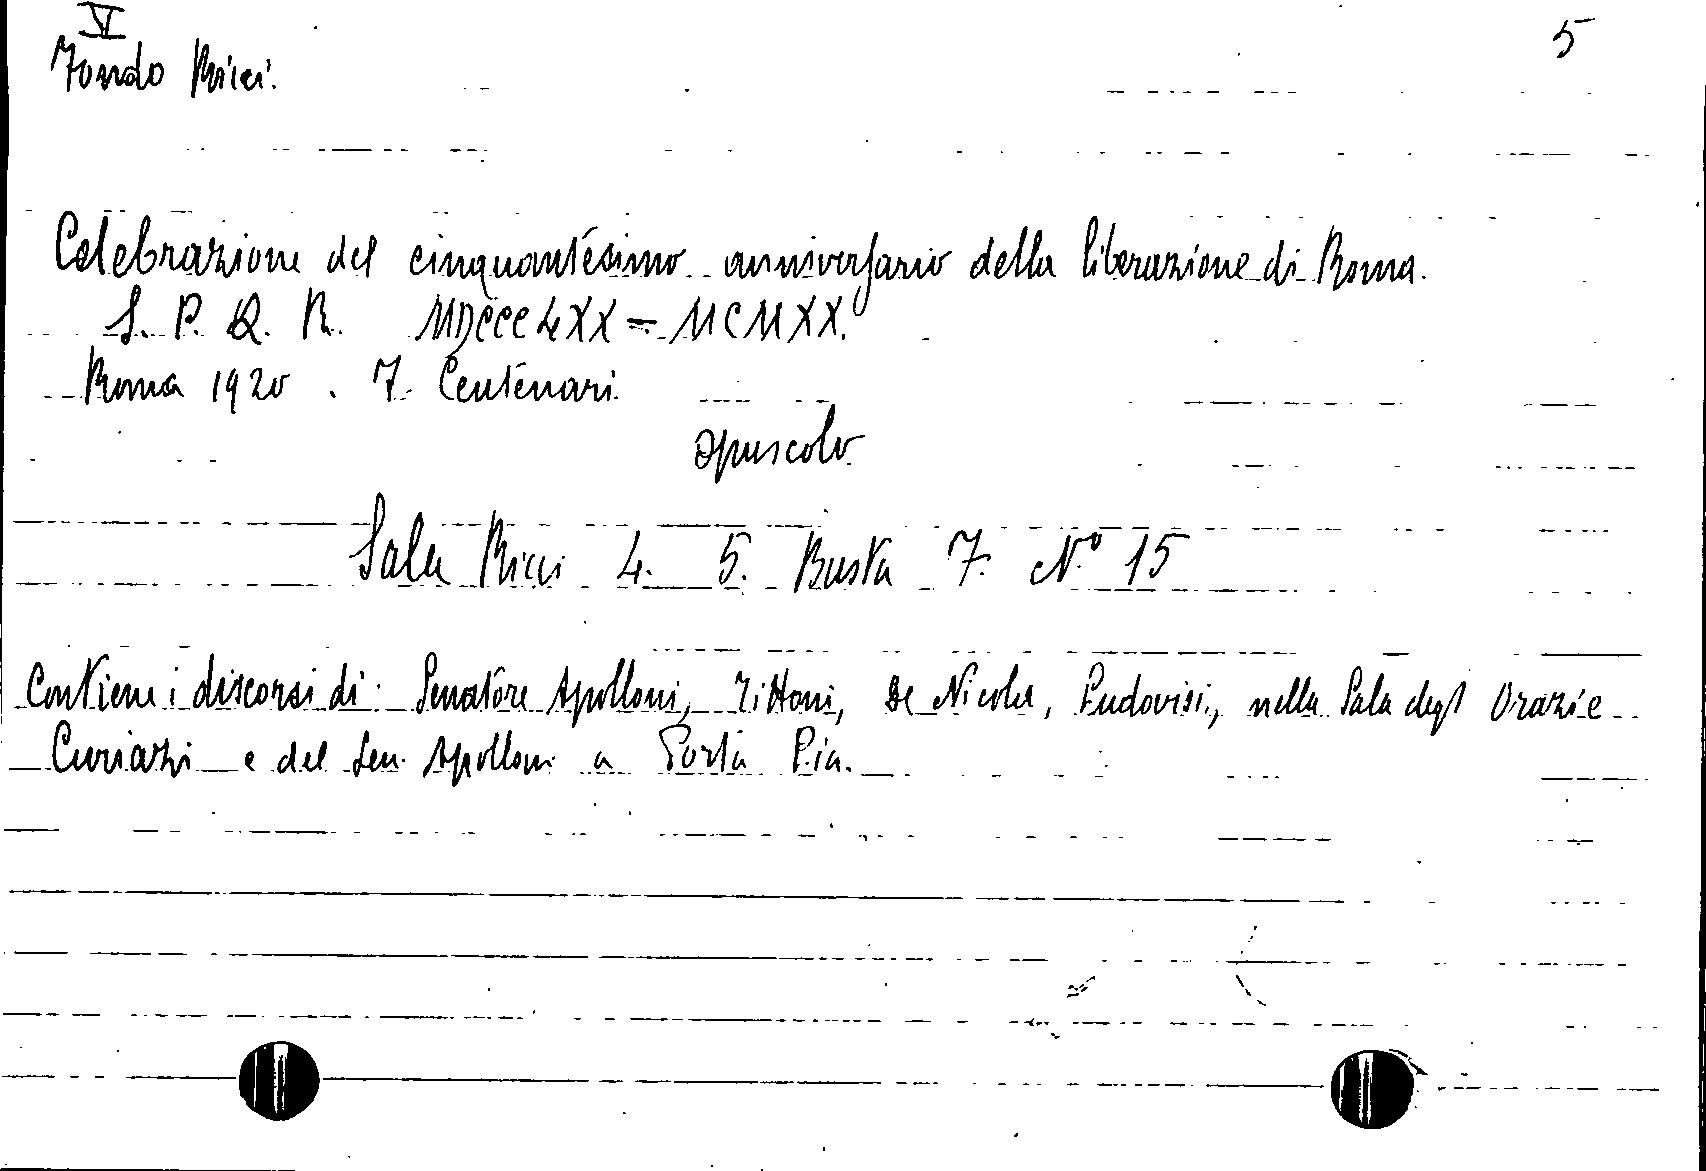 VI
5
Fondo Ricci.
Celebrazione del cinquantesimo anniversario della liberazione di Roma.
S. P. Q. R. MDCCCLXX = MCMXX.
Roma 1920. F. Centenari
opuscolo.
Sala Ricci 4. 5. Busta 7. N.º 15
Contiene i discorsi di: Senatore Apolloni, Tittoni, De Nicola, Ludovisi, nella Sala degl Orazi e
Curiazi e del Sen. Apolloni a Porta Pia.